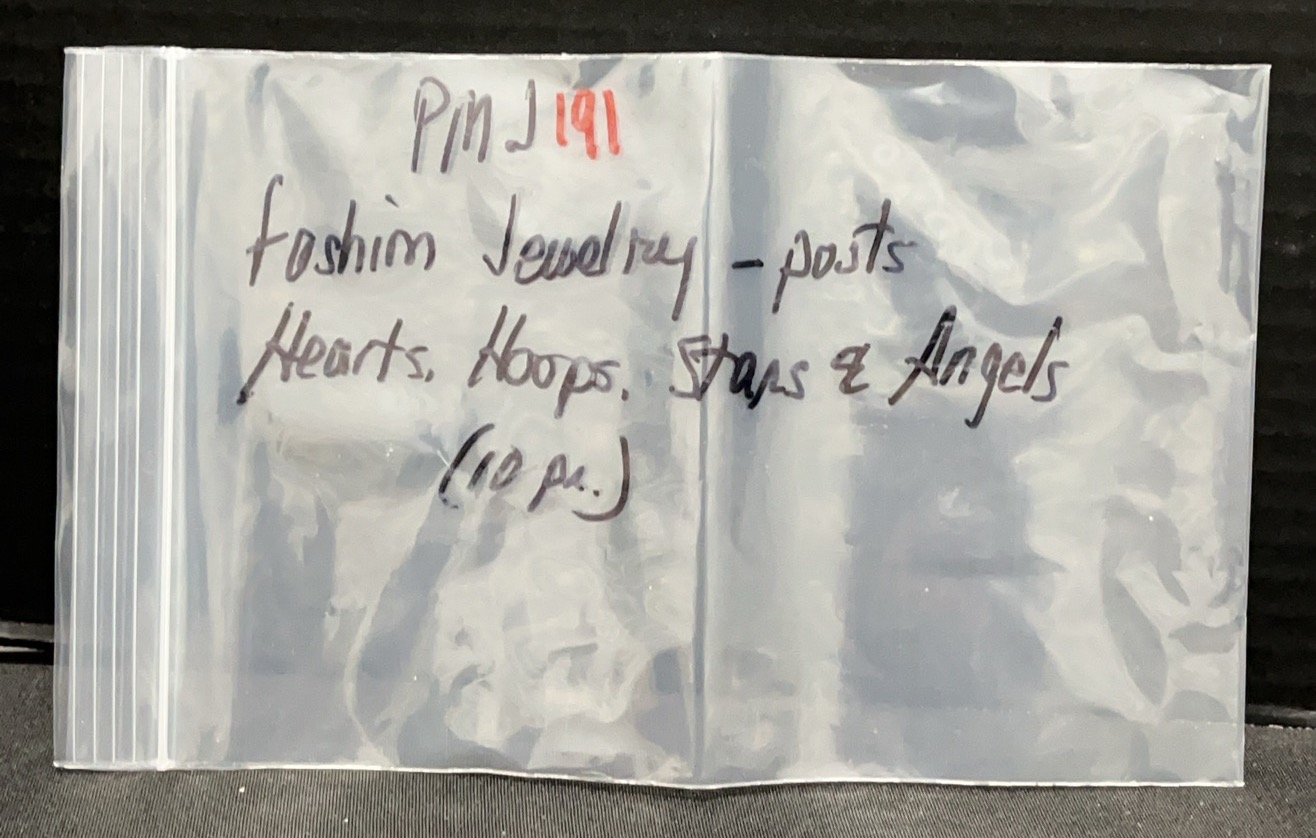 PMJ 191
Fashion Jewelry - posts
Hearts, Hoops, Stars & Angels
(10 pr.)